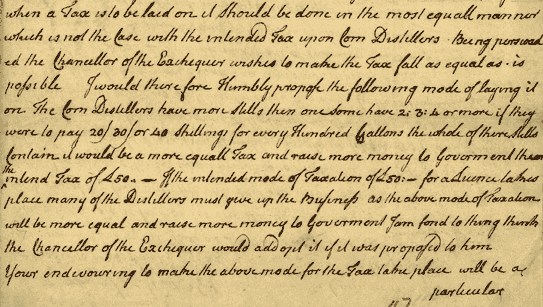 when a Tax is to be laid on it should be done in the most equall manner
which is not the Case with the intended Tax upon Corn Distillers. Being perswad
ed the Chancellor of the Exchequer wishes to make the Tax fall as equal as is
possible I would therefore Humbly propose the following mode of laying it
on. The Corn Distillers have more stills then one some have 2: 3: 4 or more if they
were to pay 20/ 30/ or 40 Shillings for every Hundred Gallons the whole of there Stills
Contain it would be a more equall Tax and raise more money to Goverment than
the intend Tax of £50.. — If the intended mode of Taxation of £50:— for a Licence takes
place many of the Distillers must give up the Business as the above mode of Taxation
will be more equal and raise more money to Goverment I am fond to thing think
the Chancellor of the Exchequer would addopt it if it was proposed to him
Your endevouring to make the above mode for the Tax take place will be a
particular